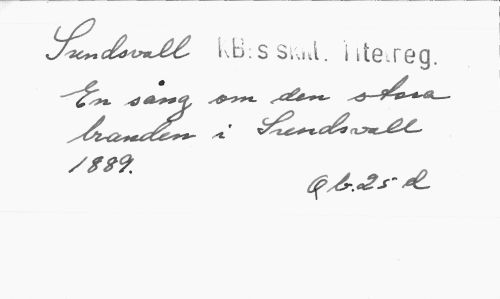 Sundsvall KB:s skill. Titelreg.
En sång om den stora
branden i Sundsvall
1889.
Q b. 25 d